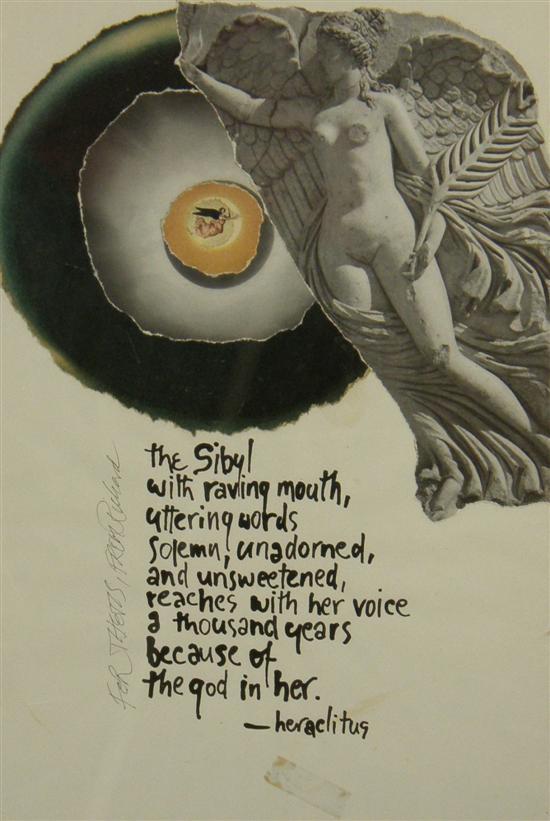 the Sibyl
with raving mouth,
uttering words
solemn, unadorned,
and unsweetened,
reaches with her voice
a thousand years
because of
the god in her.
—heraclitus
FOR FROM Richard